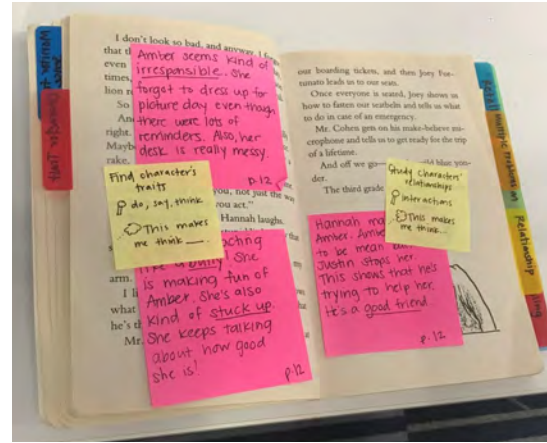 I don't look so bad, and anyway, I
that
even
times,
lion
So
And
right.
Mayb
rake,
Amber seems kind of
irresponsible. She
forgot to dress up for
picture day even though
there were lots of
reminders. Also, her
desk is really messy.
p.12
Find character's
traits
do, say, think
This makes
me think ___.
you, not just the way
you act."
Hannah laughs.
the
my
arm.
I li
what
he's th
Mr.
acting
like a bully! She
is making fun of
Amber. She's also
kind of stuck up.
She keeps talking
about how good
she is!
p.12
our boarding tickets, and then Joey For-
tunato leads us to our seats.
Once everyone is seated, Joey shows us
how to fasten our seatbelts and tells us what
to do in case of an emergency.
Mr. Cohen gets on his make-believe mi-
crophone and tells us to get ready for the trip
of a lifetime.
And off we go—
blue yon-
der.
The third grade
Study characters'
relationships
interactions
This makes
me think...
Hannah
Amber.
to be mean
Justin stops her.
This shows that he's
trying to help her.
He's a good friend.
p.12
Character Traits
Monitor
Retell
problems
Relationship